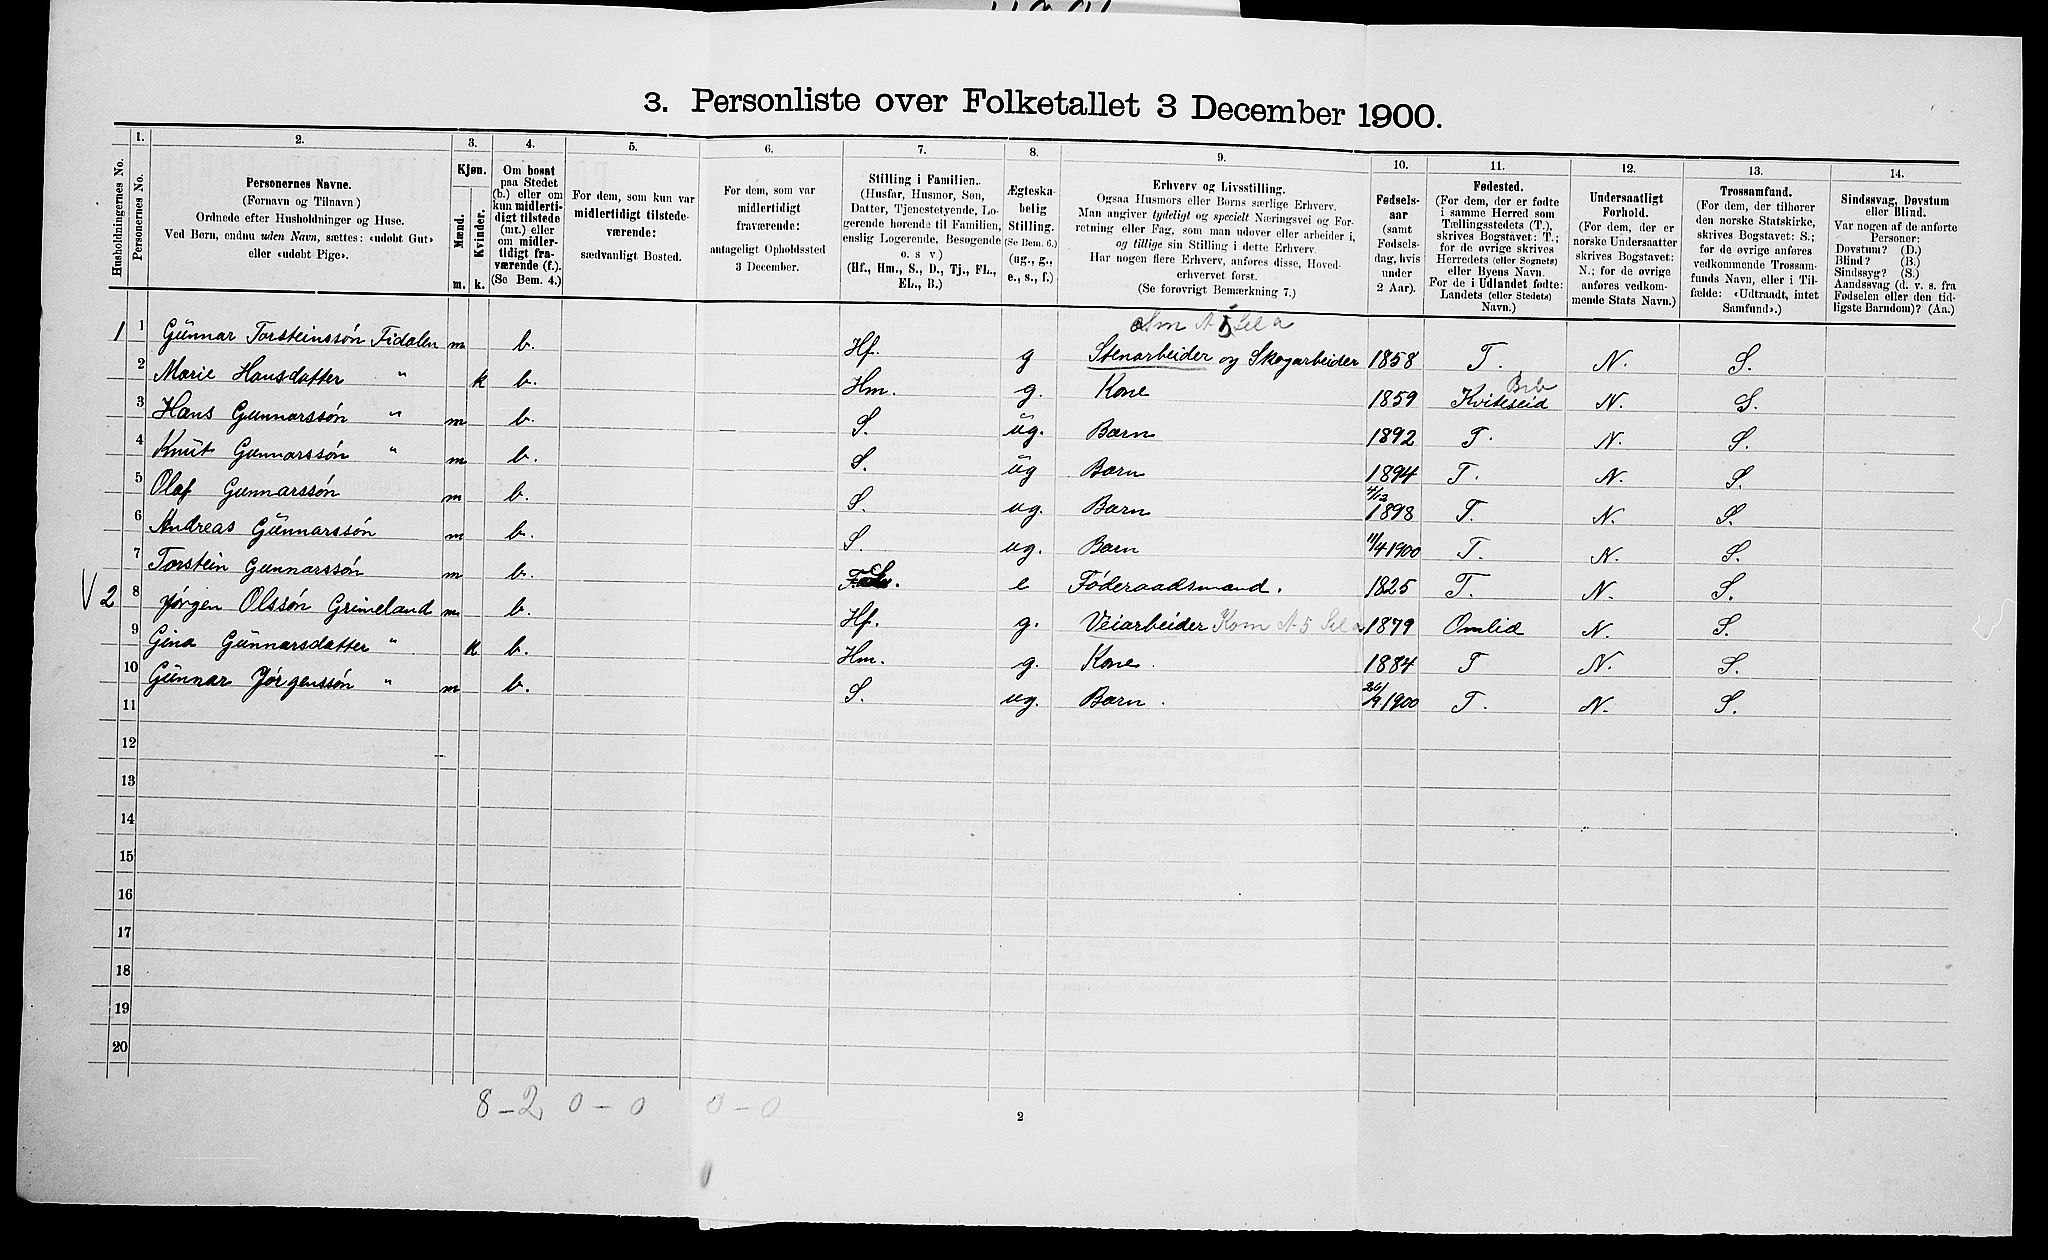 3. Personliste over Folketallet 3 December 1900.
Husholdningernes No.
1.
Personernes No.
2.
Personernes Navne.
(Fornavn og Tilnavn)
Ordnede efter Husholdninger og Huse.
Ved Børn, endnu uden Navn, sættes: «udøbt Gut»
eller «udøbt Pige».
3.
Kjøn.
Mænd.
Kvinder.
m. k.
4.
Om bosat
paa Stedet
(b.) eller om
kun midlerti-
digt tilstede
(mt.) eller
om midler-
tidigt fra-
værende (f.).
(Se Bem. 4.)
5.
For dem, som kun var
midlertidigt tilstede-
værende:
sædvanligt Bosted.
6.
For dem, som var
midlertidigt
fraværende:
antageligt Opholdssted
3 December.
7.
Stilling i Familien.
(Husfar, Husmor, Søn,
Datter, Tjenestetyende, Lo-
gerende hørende til Familien,
enslig Logerende, Besøgende
o. s v)
(Hf., Hm., S., D., Tj., FL.,
EL., B.)
8.
Ægteska-
belig
Stilling.
(Se Bem. 6.)
(ug., g.,
e., s., f.)
9.
Erhverv og Livsstilling.
Ogsaa Husmors eller Børns særlige Erhverv.
Man angiver tydeligt og specielt Næringsvei og For-
retning eller Fag, som man udøver eller arbeider i,
og tillige sin Stilling i dette Erhverv.
Har nogen flere Erhverv, anføres disse, Hoved-
erhvervet først.
(Se forøvrigt Bemærkning 7.)
10.
Fødsels-
aar
(samt
Fødsels-
dag, hvis
under
2 Aar).
11.
Fødested.
(For dem, der er fødte
i samme Herred som
Tællingsstedets (T.),
skrives Bogstavet: T.;
for de øvrige skrives
Herredets (eller Sognets)
eller Byens Navn.
For de i Udlandet fødte:
Landets (eller Stedets)
Navn.)
12.
Undersaatligt
Forhold.
(For dem, der er
norske Undersaatter
skrives Bogstavet:
N.; for de øvrige
anføres vedkom-
mende Stats Navn.)
13.
Trossamfund.
(For dem, der tilhører
den norske Statskirke,
skrives Bogstavet: S.;
for de øvrige anføres
vedkommende Trossam-
funds Navn, eller i Til-
fælde: «Udtraadt, intet
Samfund».)
14.
Sindssvag, Døvstum
eller Blind.
Var nogen af de anførte
Personer:
Døvstum? (D.)
Blind? (B.)
Sindssyg? (S.)
Aandssvag (d. v. s. fra
Fødselen eller den tid-
ligste Barndom)? (Aa.)
1 1 Gunnar Torsteinssøn Fidalen m b. Hf. g Stenarbeider og Skogarbeider 1858 T. N. S.
2 Marie Hansdatter " k b. Hm. g. Kone 1859 Kviteseid N. S.
3 Hans Gunnarssøn " m b. S. ug. Barn 1892 T. N. S.
4 Knut Gunnarssøn " m b. S. ug Barn 1894 T. N. S.
5 Olaf Gunnarssøn m b. S. ug. Barn 4/12 1898 T. N. S.
6 Andreas Gunnarssøn m b. S. ug. Barn 11/4 1900 T. N. S.
7 Torstein Gunnarssøn m b. e Føderaadsmand. 1825 T. N. S.
V 2 8 Jørgen Olssøn Grimeland m b. Hf. g. Veiarbeider Kom A 5 1879 Omlid N. S.
9 Gina Gunnarsdatter " k b. Hm. g. Kone. 1884 T N. S.
10 Gunnar Jørgenssøn " m b. S. ug. Barn. 26/9 1900 T. N. S.
11
12
13
14
15
16
17
18
19
20
8 - 2 0 - 0 0 - 0
2